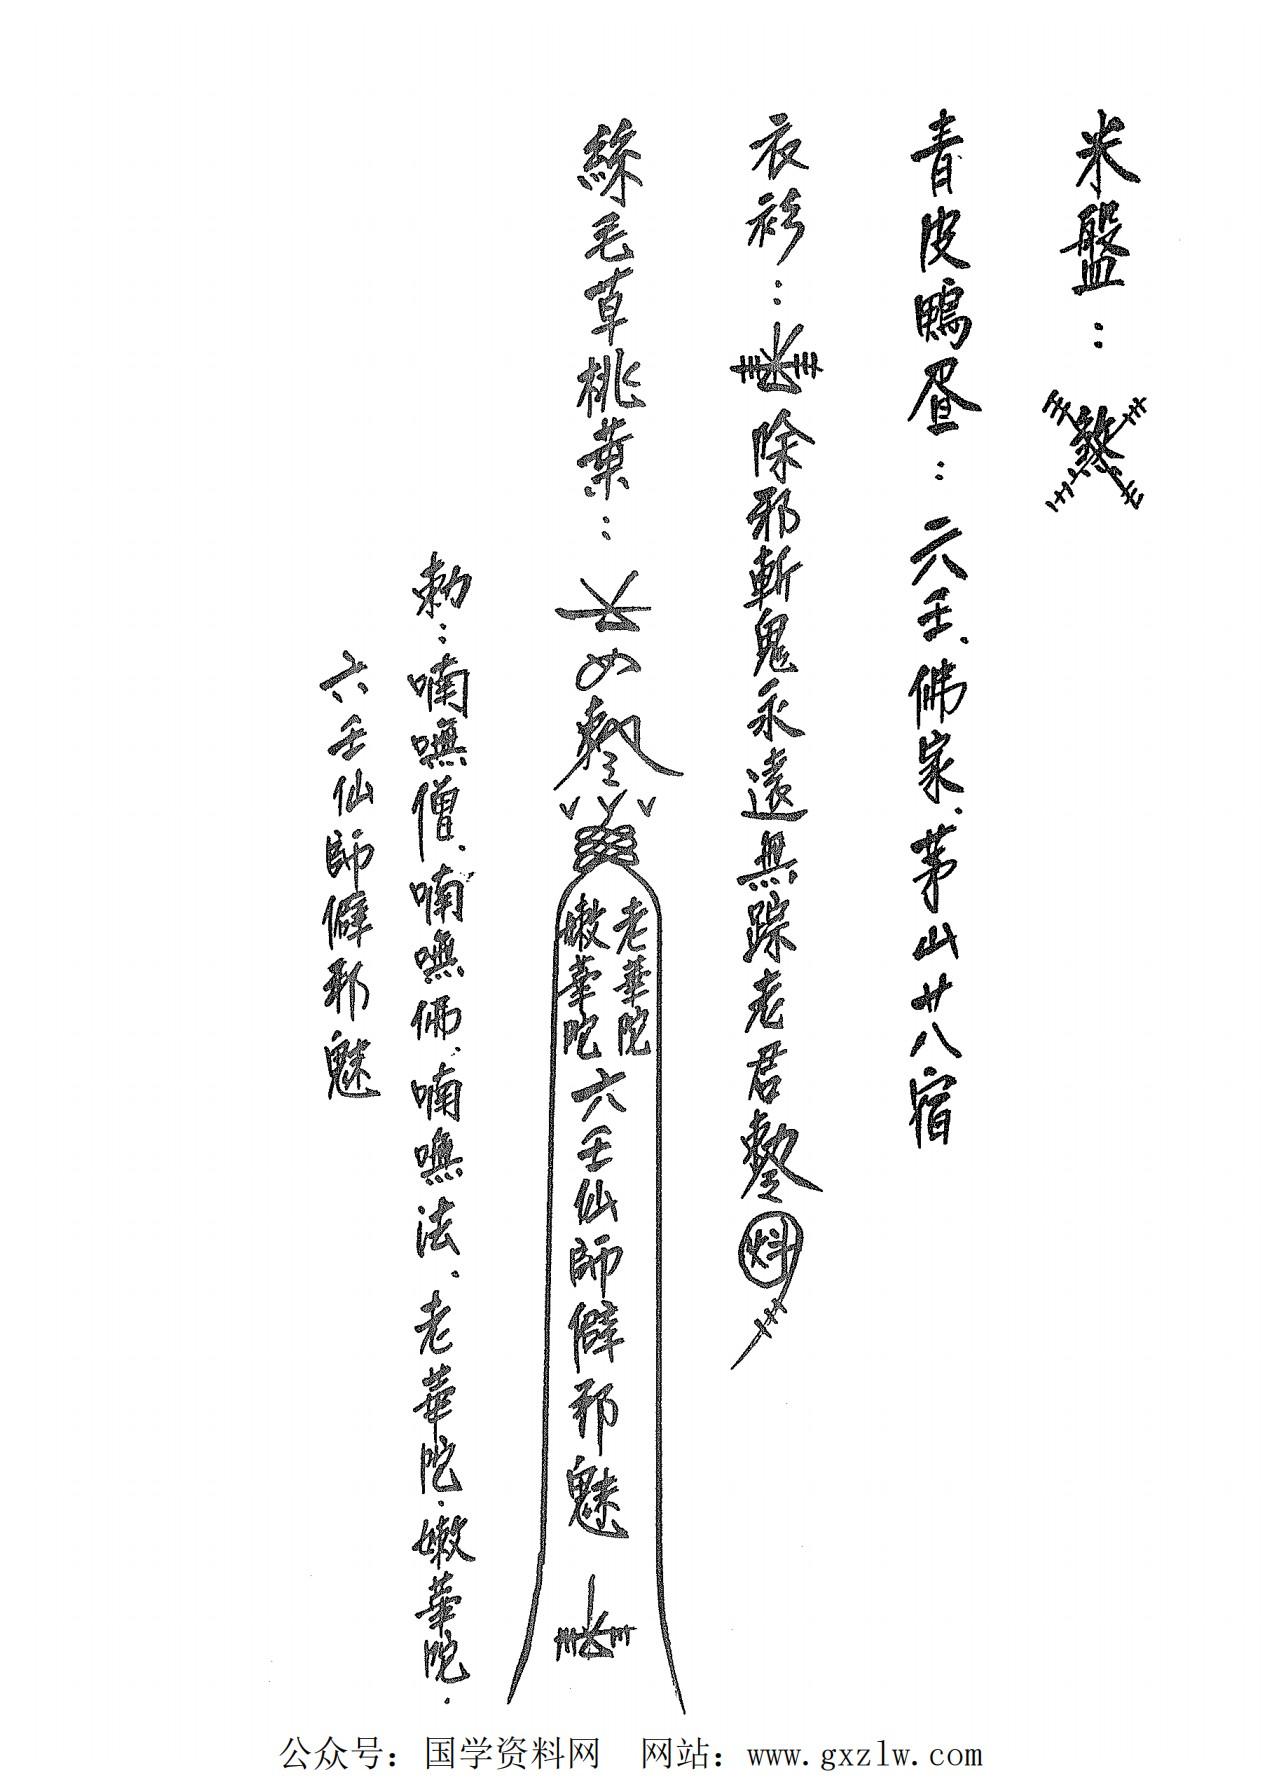 米盤：煞
青皮鴨蛋：六壬、佛家、茅山廿八宿
衣衫：除邪斬鬼永遠無踪老君
絲毛草桃葉：
老華陀
嫩華陀
六壬仙師僻邪魅
勅：喃嘸僧、喃嘸佛、喃嘸法、老華陀、嫩華陀、
六壬仙師僻邪魅
公众号：国学资料网　网站：www.gxzlw.com